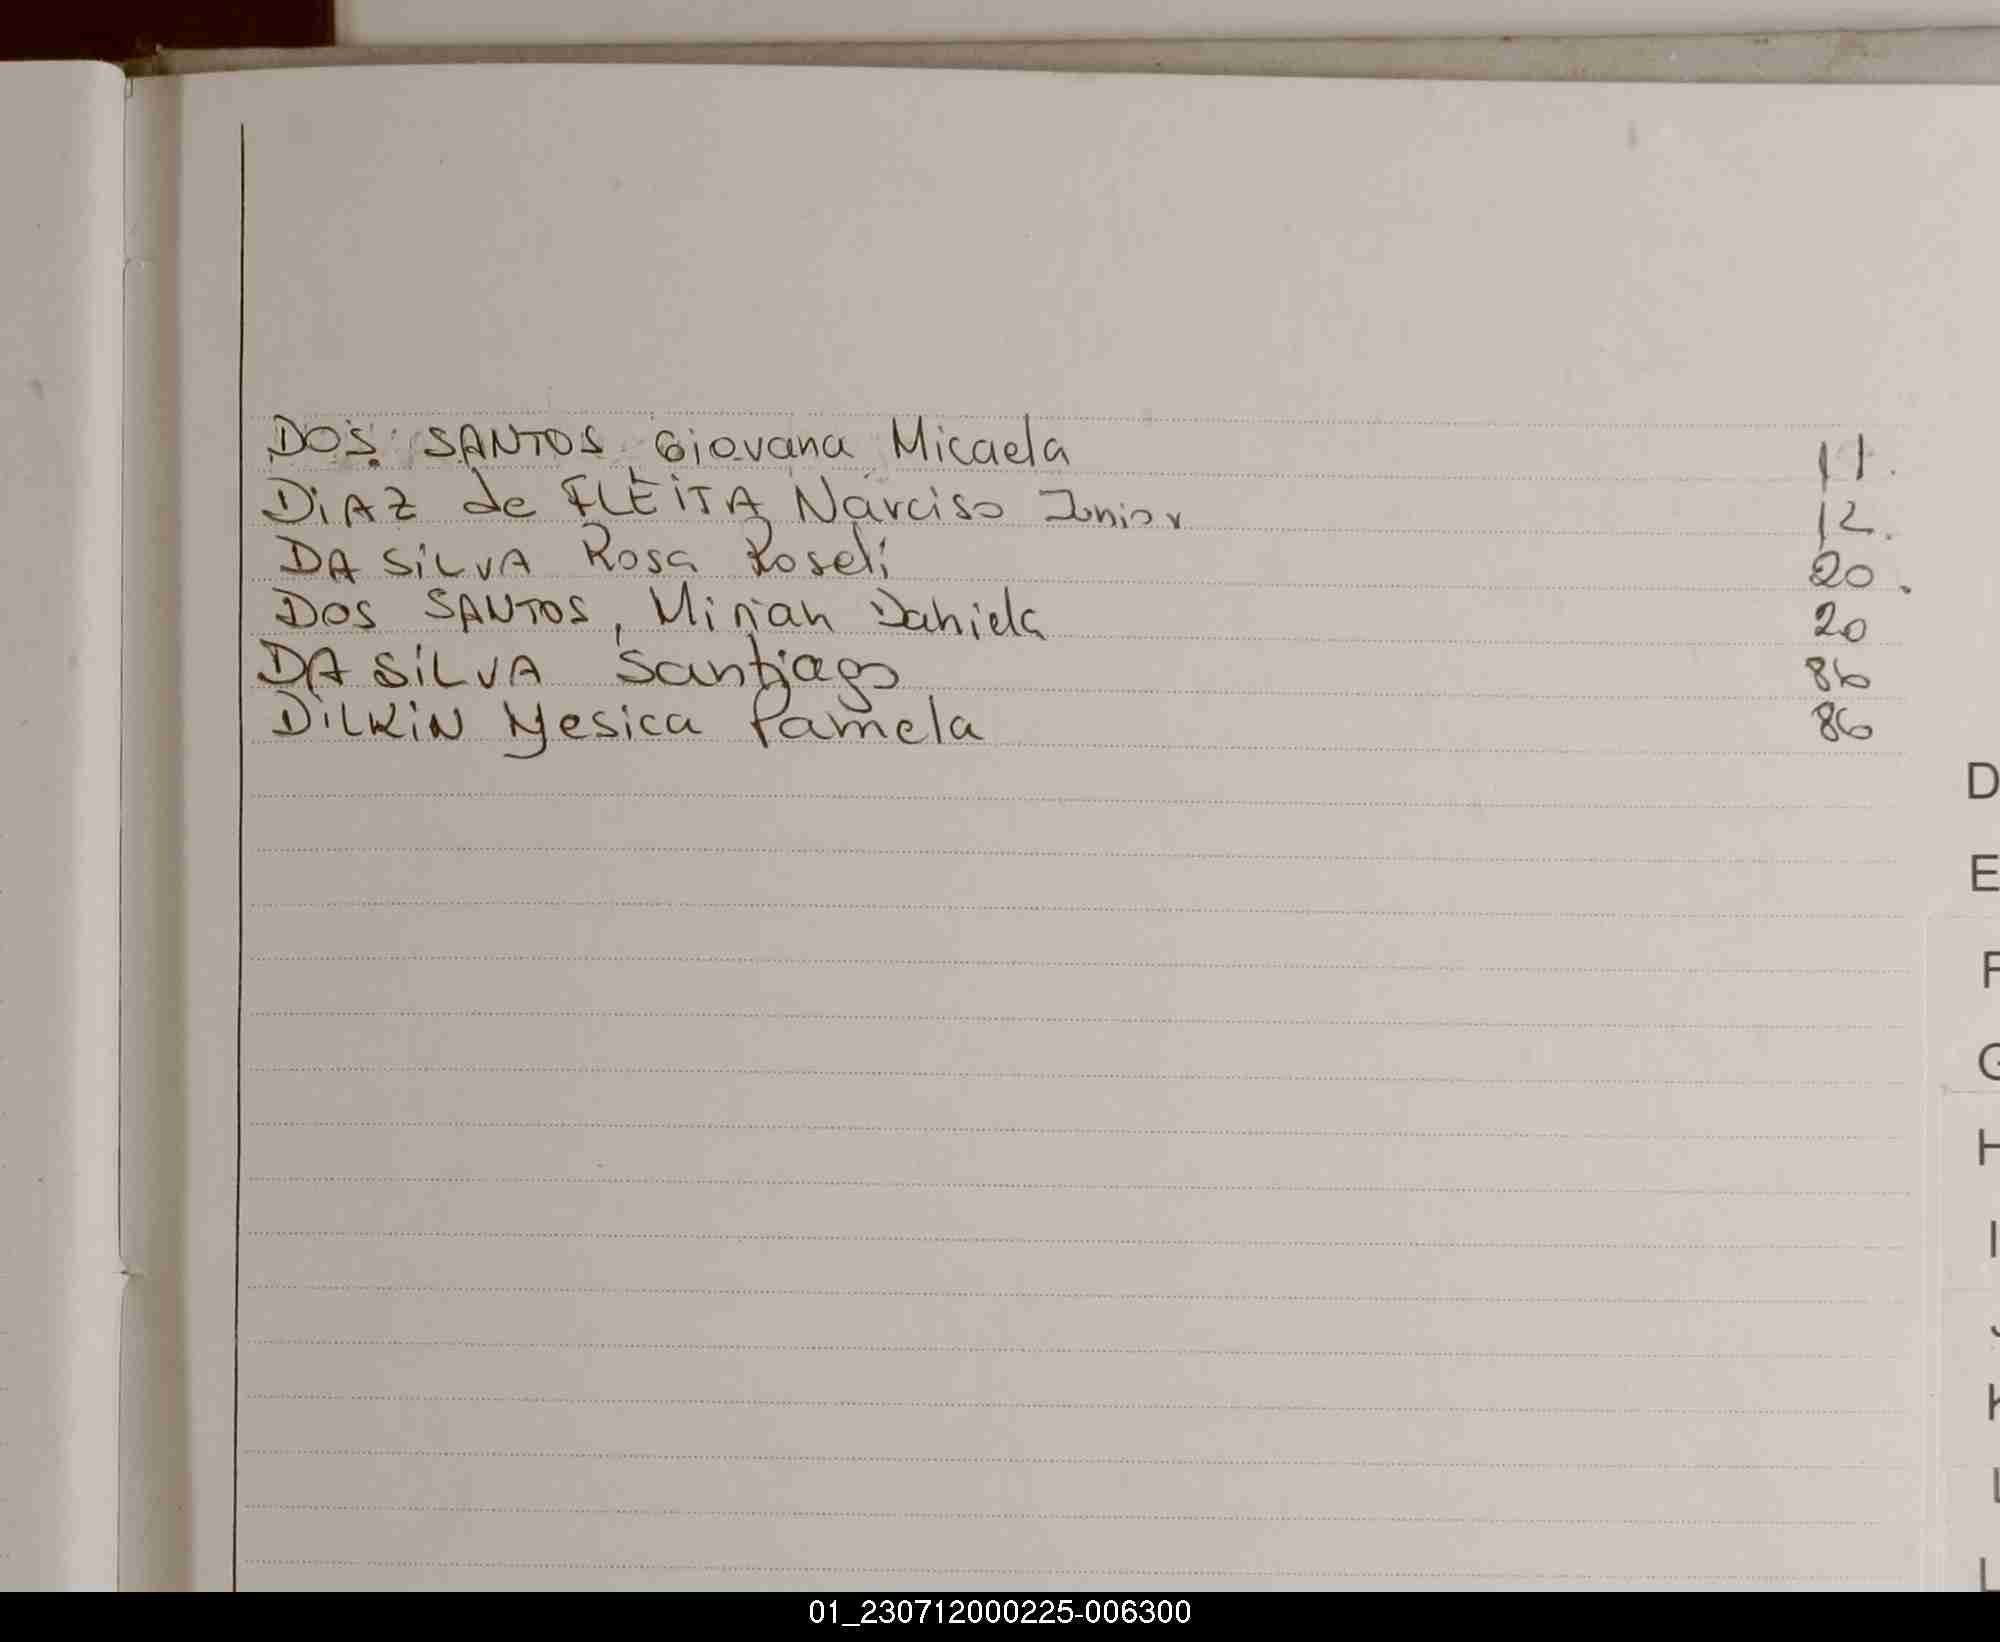 DOS SANTOS Giovana Micaela 11.
DiAZ de FLEiTA Narciso Junior 12.
DA SiLVA Rosa Roseli 20.
DOS SANTOS, Mirian Daniela 20
DA SiLVA Santiago 86
DiLKiN Yesica Pamela 86
D
E
F
G
H
I
J
K
L
01_230712000225-006300